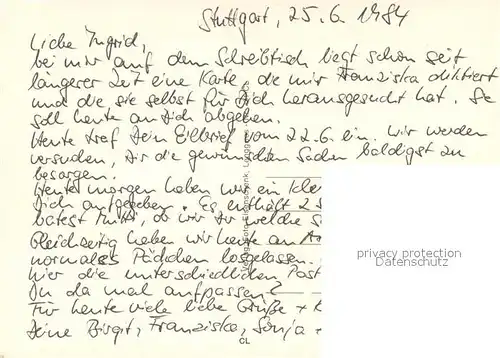 Stuttgart, 25.6.1984
Liebe Ingrid,
bei mir auf dem Schreibtisch liegt schon seit
längerer Zeit eine Karte, die mir Franziska diktiert
und die sie selbst für Dich herausgesucht hat. Sie
soll heute an Dich abgehen.
Heute traf Dein Eilbrief vom 22.6. ein. Wir werden
versuchen, Dir die gewünschten Sachen baldigst zu
besorgen.
Heute morgen haben wir ein kle
Dich aufgegeben. Es enthält 2
batest Mutti, ob wir Dir welche S
Gleichzeitig haben wir heute an
normales Päckchen losgelassen.
hier die unterschiedlichen Post
Du da mal aufpassen?
Für heute viele liebe Grüße + K
Deine Birgit, Franziska, Sonja +
CL
privacy protection
Datenschutz